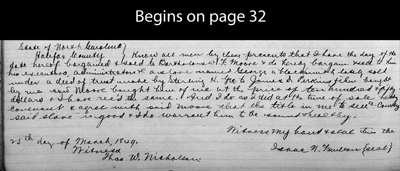 Begins on page 32
State of North Carolina
Halifax County } Know all men by these presents that I have this day of the
date hereof bargained & sold to Bartholomew F. Moore & do hereby bargain & sell to him
his executors, administrators & a slave named George a blacksmith lately sold
under a deed of trust made by Sterling H. to James S. Perkins bought
by me said Moore bought him of me at the price of ten hundred & fifty
dollars & I have recd the same. And I do as I did at the time of sale
covenant & agree with said Moore that the title in me to sell & convey
said slave is good & I do warrant him to be sound & healthy.
Witness my hand & seal this the
25th day of March, 1849.
Witness Isaac N. Faulcon (seal)
Thos. W. Nicholson